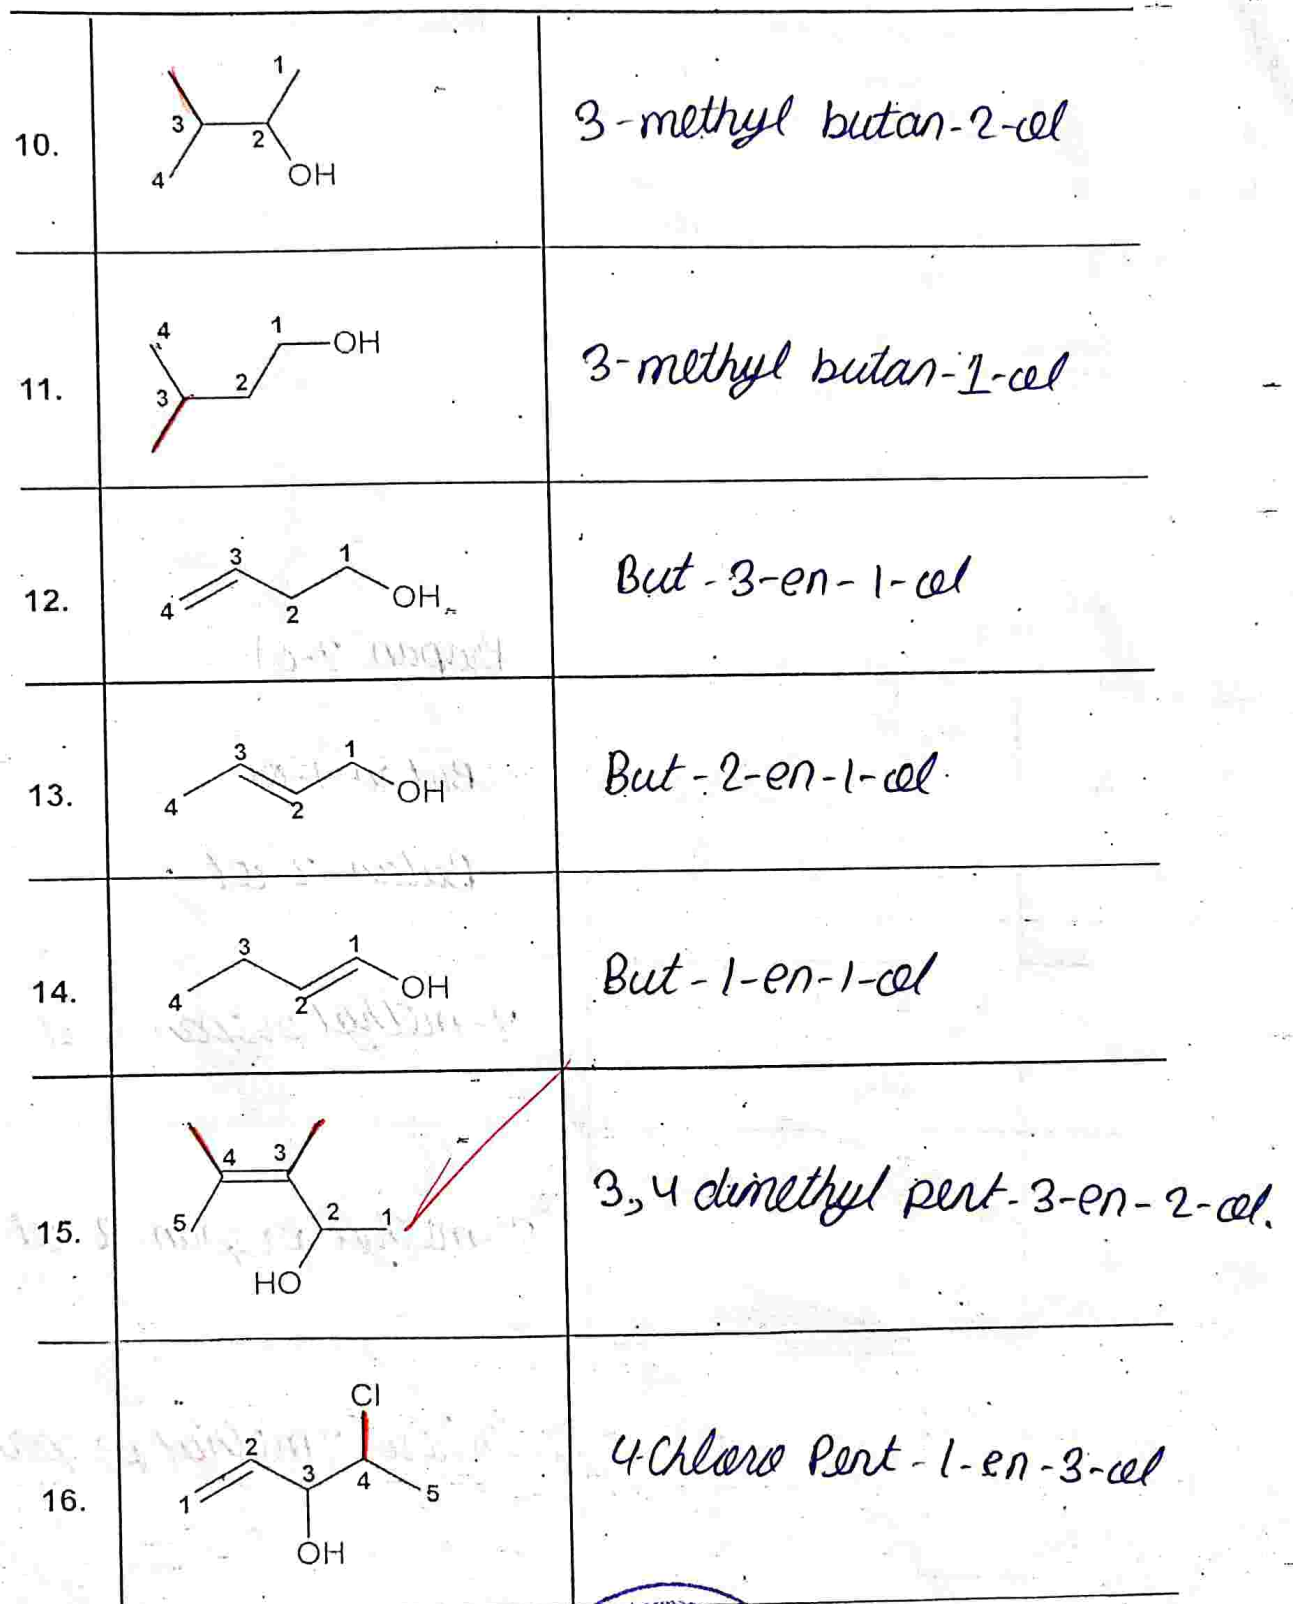 10.
1
3
2
4
OH
3-methyl butan-2-ol
11.
4
1
OH
2
3
3-methyl butan-1-ol
12.
3
1
4
2
OH
But-3-en-1-ol
13.
3
1
4
2
OH
But-2-en-1-ol
14.
3
1
4
2
OH
But-1-en-1-ol
15.
4
3
5
2
1
HO
3,4 dimethyl pent-3-en-2-ol.
16.
Cl
2
3
1
4
5
OH
4-Chloro Pent-1-en-3-ol